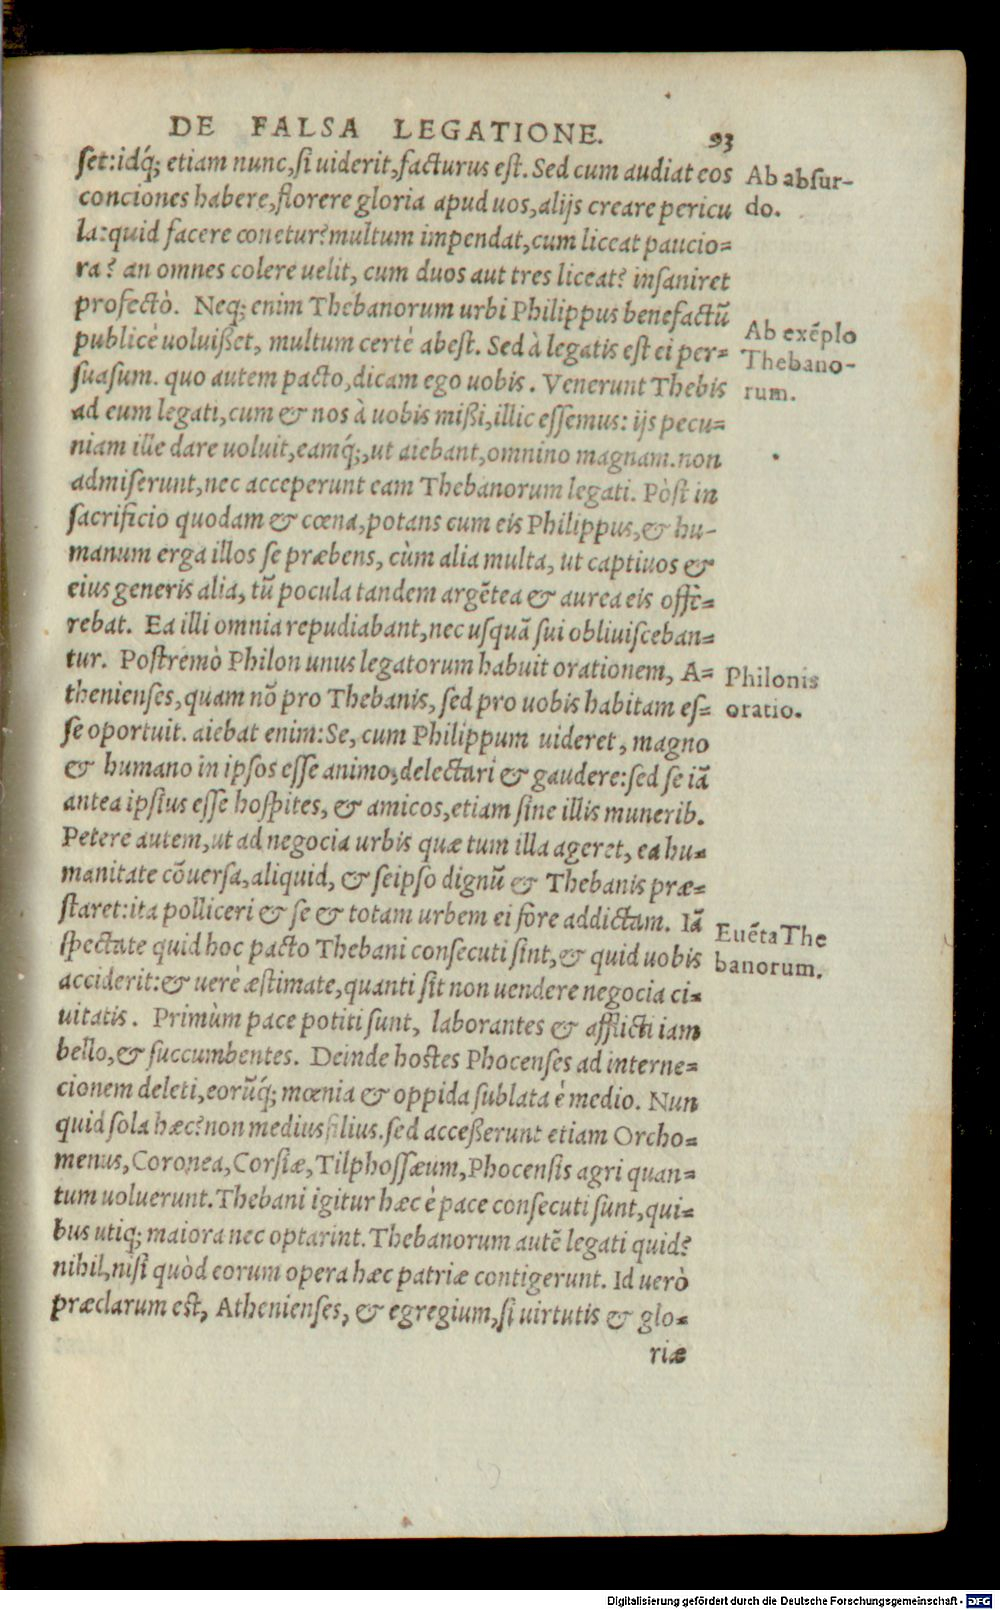 DE FALSA LEGATIONE. 93
set:idq́; etiam nunc, si uiderit, facturus est. Sed cum audiat eos
conciones habere, florere gloria apud uos, alijs creare pericu
la: quid facere conetur? multum impendat, cum liceat paucio=
ra? an omnes colere uelit, cum duos aut tres liceat? insaniret
profectò. Neq; enim Thebanorum urbi Philippus benefactũ
publicè uoluißet, multum certè abest. Sed à legatis est ei per=
suasum. quo autem pacto, dicam ego uobis. Venerunt Thebis
ad eum legati, cum & nos à uobis mißi, illic essemus: ijs pecu=
niam ille dare uoluit, eamq́;, ut aiebant, omnino magnam. non
admiserunt, nec acceperunt eam Thebanorum legati. Pòst in
sacrificio quodam & cœna, potans cum eis Philippus, & hu-
manum erga illos se præbens, cùm alia multa, ut captiuos &
eius generis alia, tũ pocula tandem argẽtea & aurea eis offe=
rebat. Ea illi omnia repudiabant, nec usquã sui obliuisceban=
tur. Postremò Philon unus legatorum habuit orationem, A=
thenienses, quam nõ pro Thebanis, sed pro uobis habitam es=
se oportuit. aiebat enim: Se, cum Philippum uideret, magno
& humano in ipsos esse animo, delectari & gaudere: sed se iã
antea ipsius esse hospites, & amicos, etiam sine illis munerib.
Petere autem, ut ad negocia urbis quæ tum illa ageret, ea hu=
manitate cõuersa, aliquid, & seipso dignũ & Thebanis præ=
staret: ita polliceri & se & totam urbem ei fore addictam. Iã
spectate quid hoc pacto Thebani consecuti sint, & quid uobis
acciderit: & uerè æstimate, quanti sit non uendere negocia ci=
uitatis. Primùm pace potiti sunt, laborantes & afflicti iam
bello, & succumbentes. Deinde hostes Phocenses ad interne=
cionem deleti, eorũq́; mœnia & oppida sublata è medio. Nun
quid sola hæc? non medius filius. sed acceßerunt etiam Orcho=
menus, Coronea, Corsiæ, Tilphossæum, Phocensis agri quan=
tum uoluerunt. Thebani igitur hæc è pace consecuti sunt, qui=
bus utiq; maiora nec optarint. Thebanorum autẽ legati quid?
nihil, nisi quòd eorum opera hæc patriæ contigerunt. Id uerò
præclarum est, Athenienses, & egregium, si uirtutis & glo=
riæ
Ab absur-
do.
Ab exẽplo
Thebano-
rum.
Philonis
oratio.
Euẽta The
banorum.
Digitalisierung gefördert durch die Deutsche Forschungsgemeinschaft - DFG